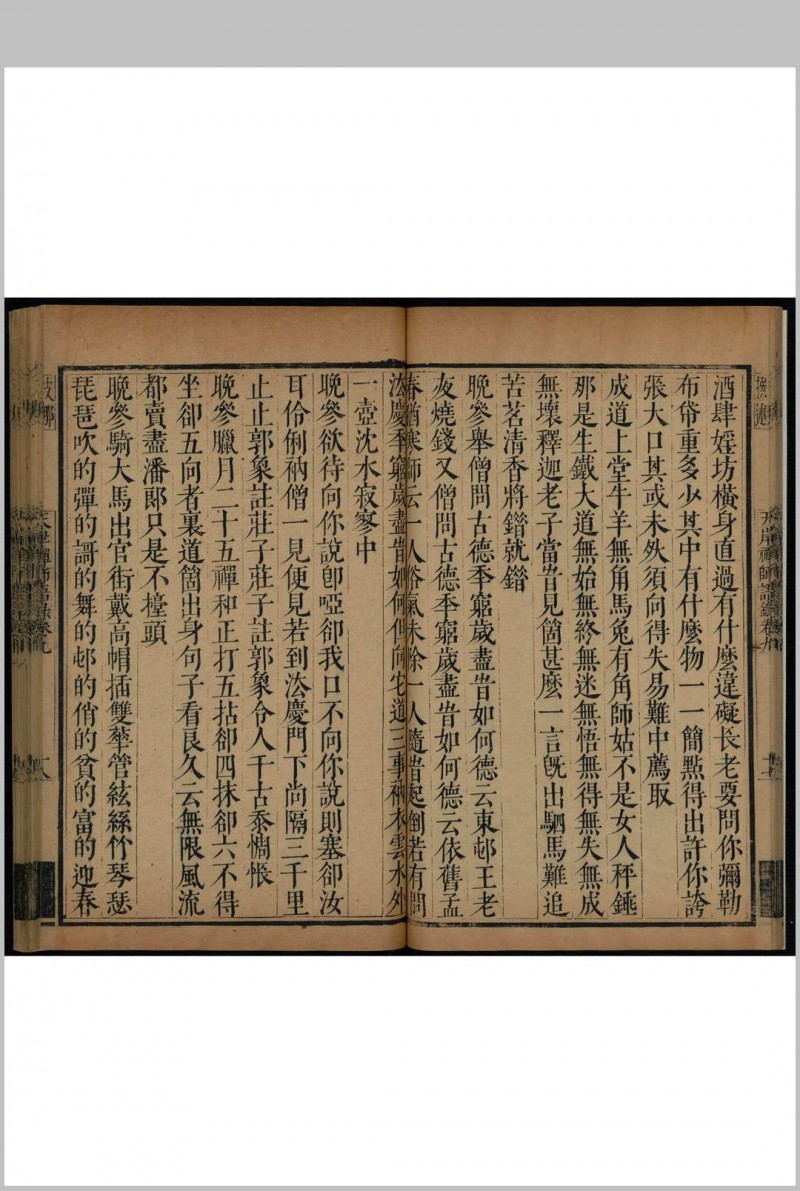 酒肆婬坊橫身直過有什麼違礙長老要問你彌勒
布帒重多少其中有什麼物一一簡點得出許你誇
張大口其或未然須向得失易難中薦取
成道上堂牛羊無角馬兔有角師姑不是女人秤錘
那是生鐵大道無始無終無迷無悟無得無失無成
無壞釋迦老子當旹見箇甚麼一言旣出駟馬難追
苦茗清香將錯就錯
晚參舉僧問古德秊窮歲盡旹如何德云東邨王老
夜燒錢又僧問古德秊窮歲盡旹如何德云依舊孟
春猶寒師云一人俗氣未除一人隨旹起倒若有問
法慶秊窮歲盡旹如何但向它道三事衲衣雲水外
一壺沈水寂寥中
晚參欲待向你說卽啞卻我口不向你說則塞卻汝
耳伶俐衲僧一見便見若到法慶門下尚隔三千里
止止郭象註莊子莊子註郭象令人千古黍惆悵
晚參臘月二十五禪和正打五拈卻四抹卻六不得
坐卻五向者裏道箇出身句子看良久云無限風流
都賣盡潘郎只是不擡頭
晚參騎大馬出官街戴高帽插雙花管絃絲竹琴瑟
琵琶吹的彈的謌的舞的邨的俏的貧的富的迎春